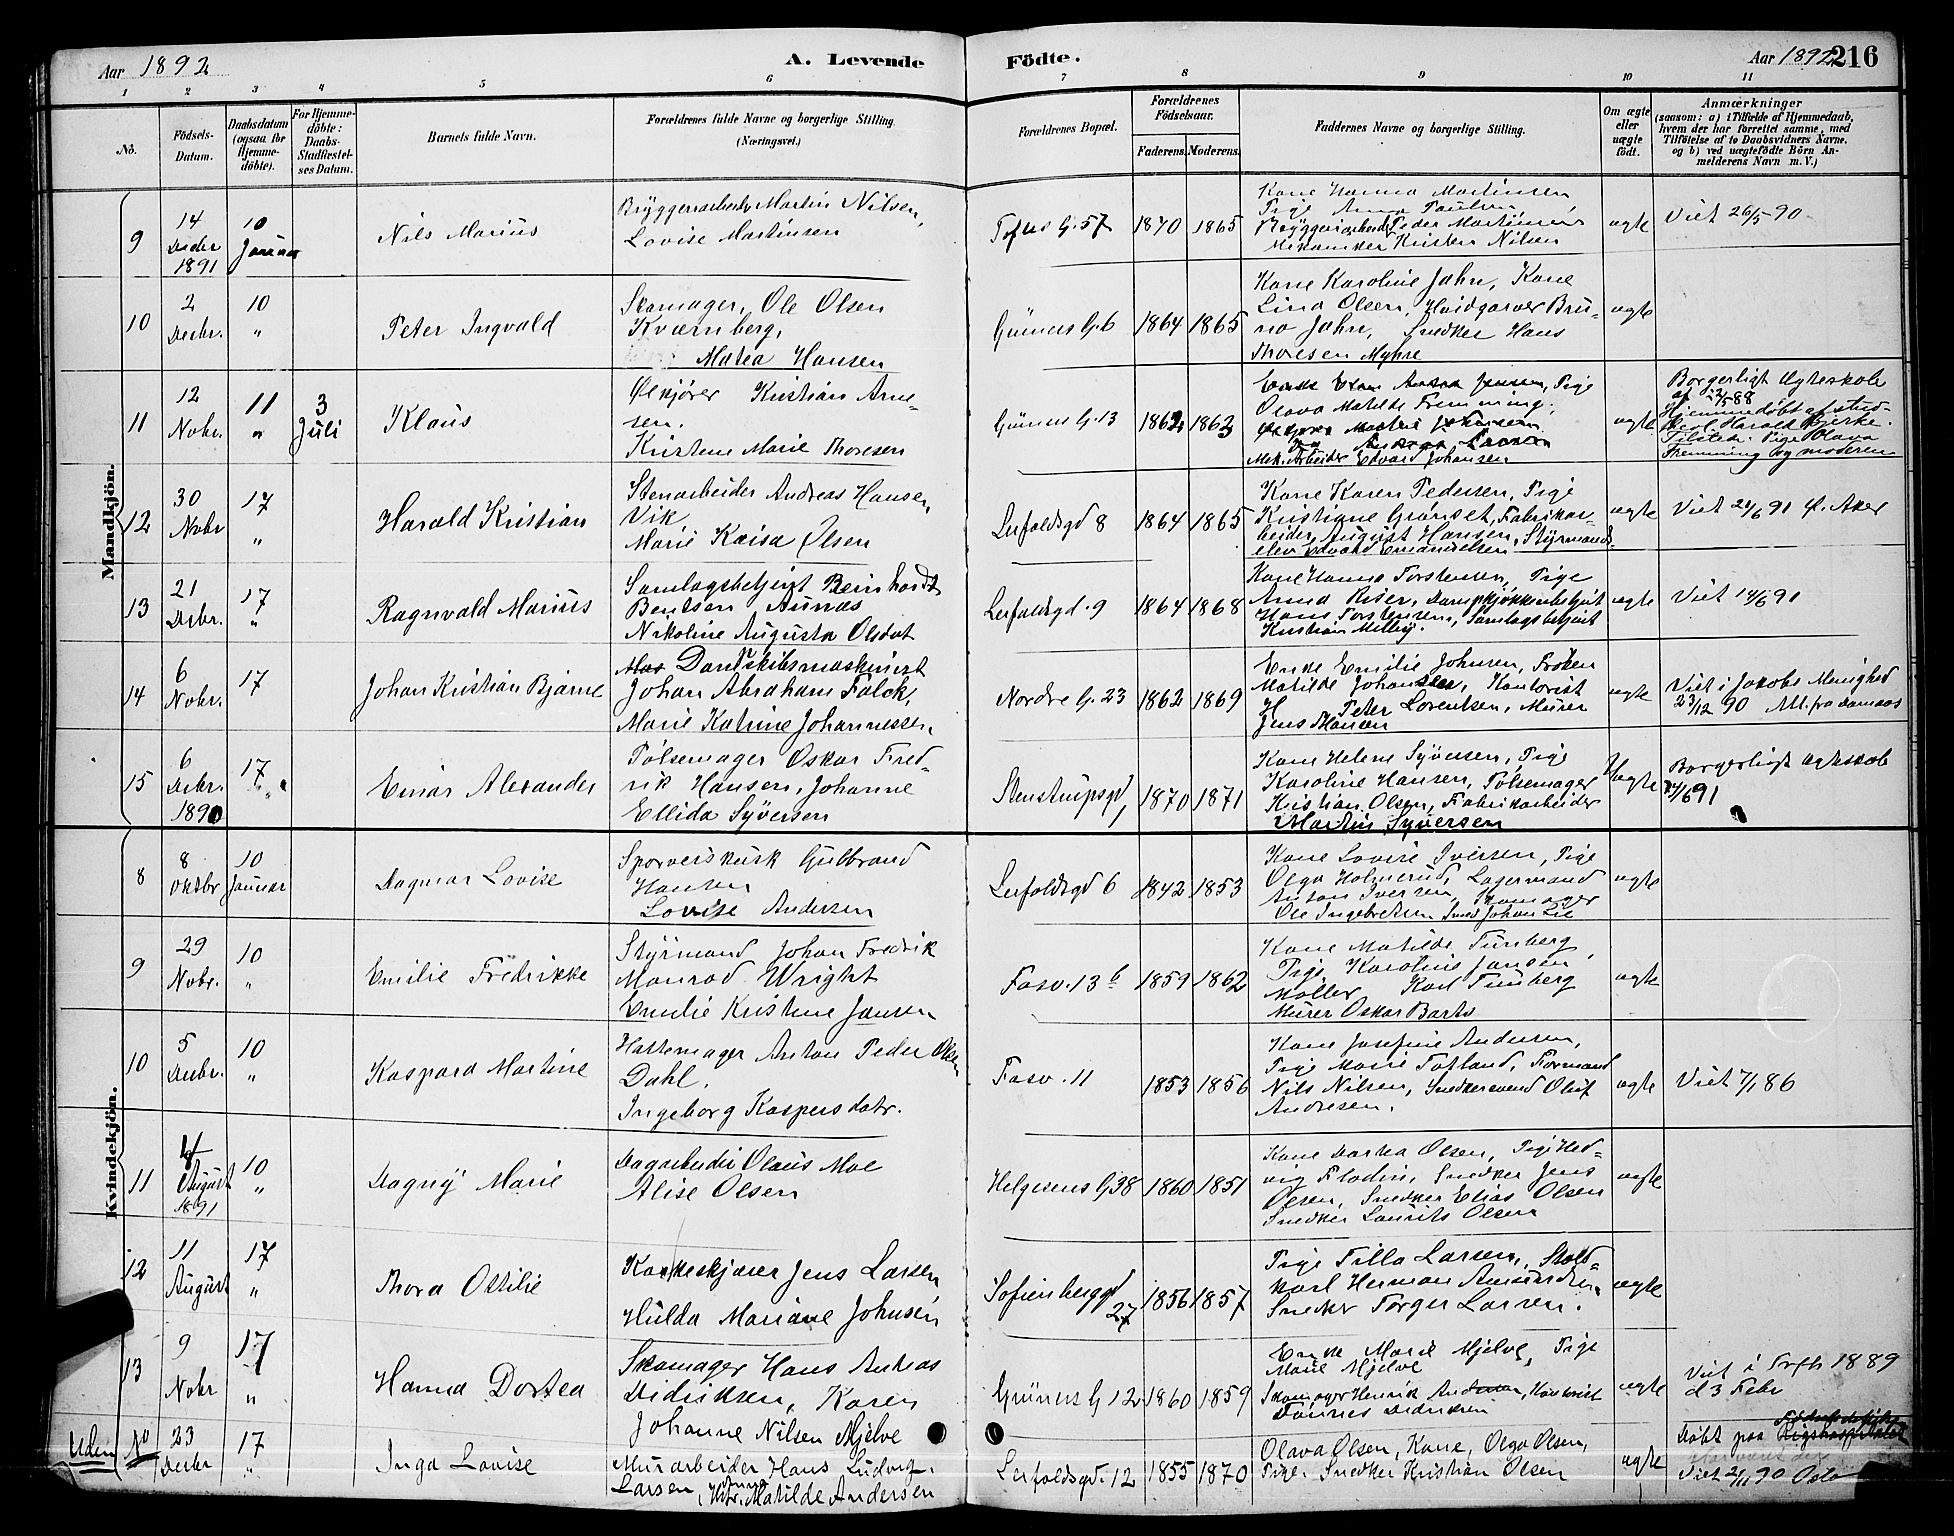 Aar 1892
A. Levende
Födte.
Aar 1892
216
1 2 3 4 5 6 7 8 9 10 11
No.
Födsels-
Datum.
Daabsdatum
(ogsaa for
Hjemme-
döbte).
For Hjemme-
döbte:
Daabs-
Stadfæstel-
ses Datum.
Barnets fulde Navn.
Forældrenes fulde Navne og borgerlige Stilling
(Næringsvei.)
Forældrenes Bopæl.
Forældrenes
Födselsaar.
Faderens. Moderens.
Faddernes Navne og borgerlige Stilling.
Om ægte
eller
uægte
födt.
Anmærkninger
(saasom: a) i Tilfælde af Hjemmedaab,
hvem der har forrettet samme, med
Tilföielse af to Daabsvidners Navne,
og b) ved uægtefödte Börn An-
melderens Navn m. V.)
Mandkjön.
9
14
Decbr
1891
10
Januar
Nils Marius
Bryggeriarbeider Martin Nilsen,
Lovise Martinsen
Toftes G. 57
1870
1865
Kone Hanna Martinsen
Pige Anna Paulsen
Bryggeriarbeider Peder Martinsen
Mekaniker Kristen Nilsen
ægte
Viet 26/5 90
10
2
Decbr.
10
"
Peter Ingvald
Skomager, Ole Olsen
Kværnberg,
Matea Hansen
Grüners G. 6
1864
1865
Kone Karoline Jahn, Kone
Lina Olsen, Hvidgarver Bru-
no Jahn, Snedker Hans
Thoresen Myhre
ægte
11
12
Nobr.
11
"
3
Juli
Klaus
Ølkjører Kristian Arne-
sen.
Kristene Marie Thoresen
Grüners G. 13
1862
1863
Olava Matilde Fremming,
Mek. Arbeider Edvard Johansen
ægte
Borgerligt Ægteskab
af 12/5 88
Hjemmedøbt af stud.
Harald Bjerke.
Tilstede: Pige Olava
Fremming og moderen
12
30
Nobr
17
"
Harald Kristian
Stenarbeider Andreas Hansen
Vik
Marie Kaisa Olsen
Leifaldsgd 8
1864
1865
Kone Karen Pedersen, Pige
Kristiane Grønset, Fabrikar-
beider August Hansen, Styrmands-
elev Edvard Emanuelsen
ægte
Viet 21/6 91 Ø. Aker
13
21
Decbr.
17
"
Ragnvald Marius
Samlagsbetjent Beinhardt
Bentsen Aunæs
Nikoline Augusta Olsdat
Leifaldsgd. 9
1864
1868
Kone Hanna Torstensen, Pige
Anna Riser, Dampkjøkkenbetjent
Hans Torstensen, Samlagsbetjent
Kristian Melby.
ægte
Viet 14/6 91
14
6
Nobr.
17
Johan Kristian Bjarne
Dampskibsmaskinist
Johan Abraham Falck,
Marie Katrine Johannessen
Nordre G. 23
1862
1869
Enke Emilie Johnsen, Frøken
Matilde Johansen, Kontorist
Peter Lorentsen, Murer
Jens Hansen
ægte
Viet i Jakobs Menighed
23/12 90
15
6
Decbr.
1890
17
"
Einar Alexander
Pølsemager Oskar Fred-
rik Hansen, Johanne
Ellida Syversen
Stenstrupsgd 1
1870
1871
Kone Helene Syversen, Pige
Karoline Hansen, Pølsemager
Kristian Olsen, Fabrikarbeider
Martin Syversen
Uægte
Borgerligt Ægteskab
24/6 91
Kvindekjön.
8
8
Oktbr
10
Januar
Dagmar Lovise
Sporveiskusk Gulbrand
Hansen
Lovise Andersen
Leifaldsgd 6
1842
1853
Kone Lovise Iversen, Pige
Olga Holmerud, Lagermand
Anton Iversen, Skomager
Ole Ingebretsen, Smed Johan Lie
ægte
9
29
Nobr.
10
"
Emilie Fredrikke
Styrmand Johan Fredrik
Monrad Wright
Emilie Kristine Jansen
Fosv. 13 b
1859
1862
Kone Matilde Tunberg,
Pige Karoline Jansen,
Møller Karl Tunberg
Murer Oskar Barts
ægte
10
5
Decbr.
10
"
Kaspara Martine
Hattemager Anton Peder Olsen
Dahl.
Ingeborg Kaspersdatr.
Fosv. 11
1853
1856
Kone Josefine Andersen,
Pige Marie Totland, Formand
Nils Nilsen, Snedkersvend Oluf
Andresen.
ægte
Viet 7/1 86
11
4
August
1891
10
"
Dagny Marie
Dagarbeider Olaus Moe
Alise Olsen
Helgesens G 38
1860
1851
Kone Dortea Olsen, Pige Hed-
vig Flodin, Snedker Jens
Olsen, Snedker Elias Olsen
Snedker Laurits Olsen
ægte
12
11
August
17
"
Thora Otilie
Kaskeskjærer Jens Larsen
Hulda Mariane Johnsen
Sofienberggd
27
1856
1857
Pige Tilla Larsen, Stald-
karl Herman Amundsen,
Snedker Torger Larsen.
ægte
13
9
Nobr
17
"
Hanna Dortea
Skomager Hans Andreas
Didriksen, Karen
Johanne Nilsen Mjelve
Grüners G 12
1860
1859
Enke Marie Mjelve, Pige
Marie Mjelve
Skomager Henrik Andersen, Kontorist
Tønnes Didriksen
ægte
Viet i Trefh 1889
d 3 Febr
Uden No
23
Decbr
17
"
Inga Lovise
Murarbeider Hans Ludvig
Larsen, Anna Matilde Andersen
Leifaldsgd. 12
1855
1870
Olava Olsen, Kone, Olga Olsen,
Pige, Snedker Kristian Olsen
ægte
Fødselsstiftelsen
Døbt paa Rigshospitalet
Viet 2/11 90 Oslo